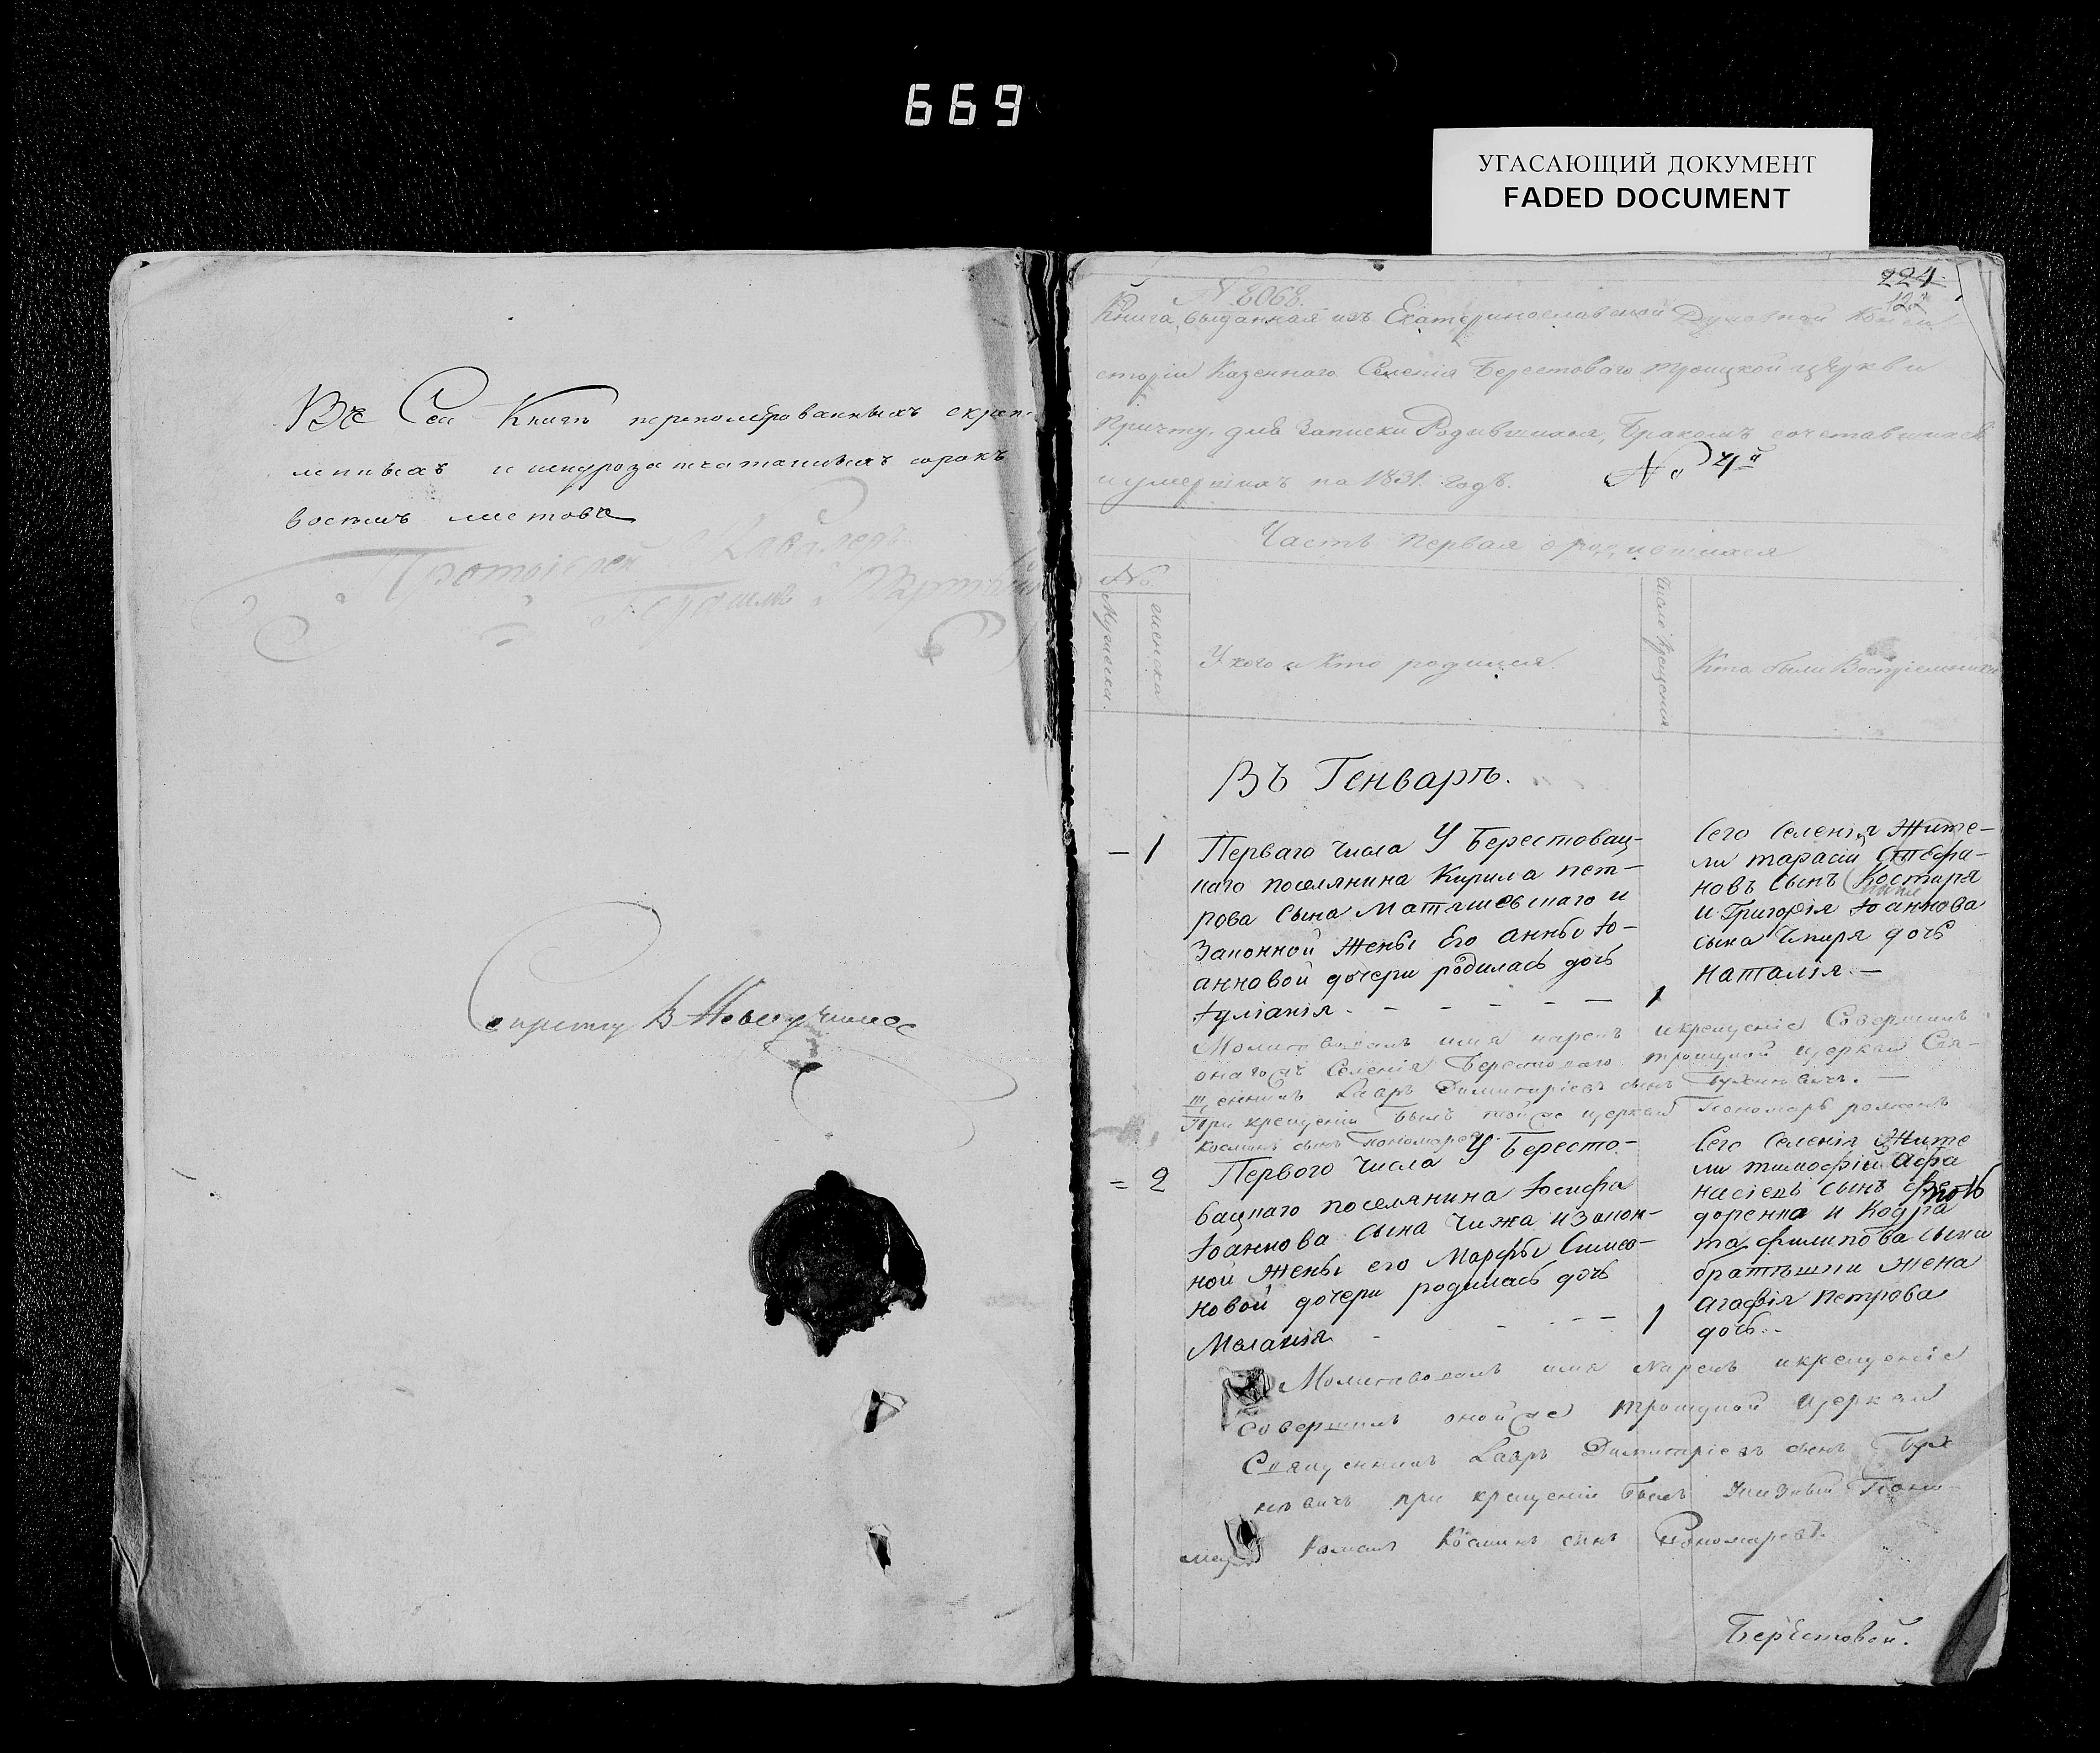 669
УГАСАЮЩИЙ ДОКУМЕНТ
FADED DOCUMENT
Въ Сей Книге перенолѣрованныхъ скреп-
ленныхъ и шнурозапечатанныхъ сорокъ
восемь листовъ
Секретарь
224
122
№ 8068.
Книга, выданная изъ Екатеринославской Духовной Консис-
сторіи Казеннаго Селенія Берестоваго троицкой церкви
Причту, для Записки Родившихся, Бракомъ сочетавшихся
и умершихъ на 1831. годъ.
№ 4й
Часть Первая о родившихся
№.
Мужеска.
женска
У кого и Кто родился.
Число крещения
Кто были Воспріемники
Въ Генварѣ.
1
Перваго числа У Берестовац-
наго поселянина Кирила пет-
рова сына Матяшевскаго и
Законной жены Его Анны Іо-
анновой дочери родилась дочь
Іуліанія. 1
Сего Селенія Жите-
ли тарасій Стефа-
новъ сынъ Костыря
и Григорія Іоаннова
сына дочь
Наталія.
Молитвовалъ имя нарекъ и крещеніе Совершилъ
онагожъ Селенія Берестоваго троицкой церкви Свя-
щенникъ Лавръ Димитріевъ сынъ
При крещеніи былъ тойже церкви Пономарь романъ
Косминъ сынъ Пономаревъ.
2
Первого числа У Бересто-
вацнаго поселянина Іосифа
Іоаннова сына Чижа и Закон-
ной жены его Марфы Симео-
новой дочери родилась дочь
Меланія 1
Сего Селенія Жите
ли тимофій Афа
насіевъ сынъ Фе-
доренко и Кодра
та филипова сына
братышки жена
Агафія Петрова
дочь.
Молитвовалъ имя нарекъ и крещеніе
Совершилъ онойже троицкой церкви
Священникъ Лавръ Димитріевъ сынъ
при крещеніи былъ Поно-
марь Романъ Косминъ сынъ Пономаревъ.
Берестовой.